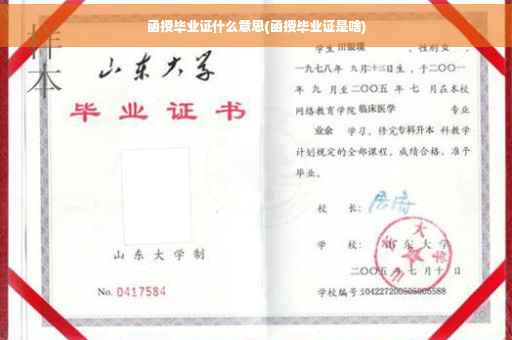 函授毕业证什么意思(函授毕业证是啥)
样本
山东大学
毕业证书
山东大学制
No. 0417584
学生
性别女，
一九七八年 九月十三日生，于二〇〇一
年 九 月至二〇〇五 年 七 月在本校
网络教育学院 临床医学 专业
业余 学习，修完专科升本 科教学
计划规定的全部课程，成绩合格，准予
毕业。
校 长：
学 校： 山东大学
二〇〇五 年 七 月 十 日
学校编号:104227200505005588